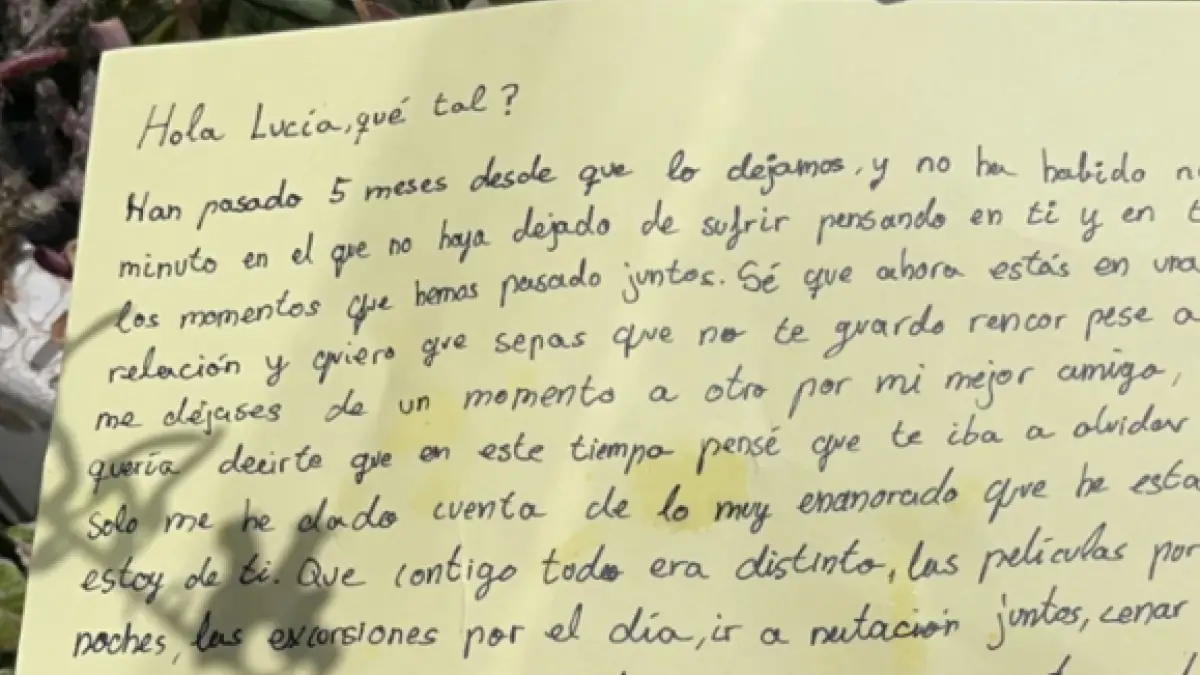 Hola Lucía, qué tal?
Han pasado 5 meses desde que lo dejamos, y no ha habido
minuto en el que no haya dejado de sufrir pensando en ti y en
los momentos que hemos pasado juntos. Sé que ahora estás en una
relación y quiero que sepas que no te guardo rencor pese a
me dejases de un momento a otro por mi mejor amigo,
quería decirte que en este tiempo pensé que te iba a olvidar
solo me he dado cuenta de lo muy enamorado que he esta
estoy de ti. Que contigo todo era distinto, las películas por
noches, las excursiones por el día, ir a natación juntos, cenar